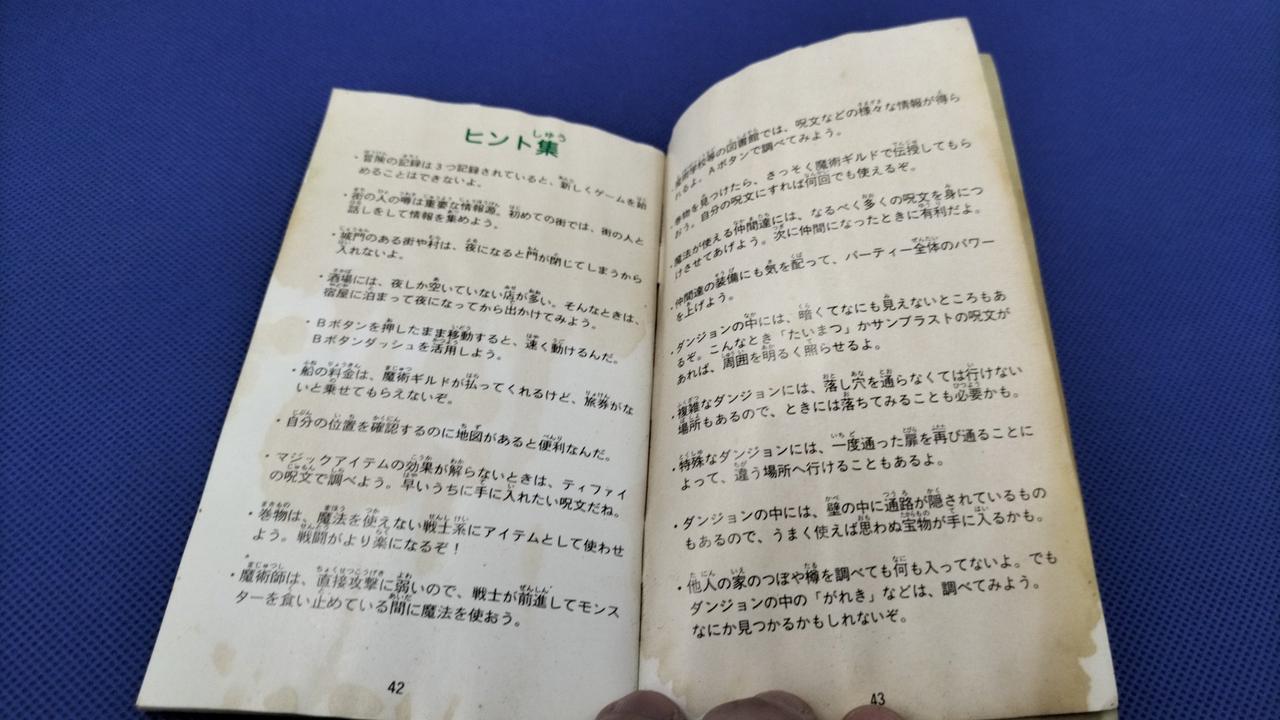 ヒント集
しゅう
・冒険の記録は3つ記録されていると、新しくゲームを始
めることはできないよ。
・街の人の噂は重要な情報源。初めての街では、街の人と
話しをして情報を集めよう。
・城門のある街や村は、夜になると門が閉じてしまうから
入れないよ。
・酒場には、夜しか空いていない店が多い。そんなときは、
宿屋に泊まって夜になってから出かけてみよう。
・Bボタンを押したまま移動すると、速く動けるんだ。
Bボタンダッシュを活用しよう。
・船の料金は、魔術ギルドが払ってくれるけど、旅券がな
いと乗せてもらえないぞ。
・自分の位置を確認するのに地図があると便利なんだ。
・マジックアイテムの効果が解らないときは、ティファイ
の呪文で調べよう。早いうちに手に入れたい呪文だね。
・巻物は、魔法を使えない戦士系にアイテムとして使わせ
よう。戦闘がより楽になるぞ!
・魔術師は、直接攻撃に弱いので、戦士が前進してモンス
ターを食い止めている間に魔法を使おう。
42
・魔術学校等の図書館では、呪文などの様々な情報が得ら
れるよ。Aボタンで調べてみよう。
・巻物を見つけたら、さっそく魔術ギルドで伝授してもら
おう。自分の呪文にすれば何回でも使えるぞ。
・魔法が使える仲間達には、なるべく多くの呪文を身につ
けさせてあげよう。次に仲間になったときに有利だよ。
・仲間達の装備にも気を配って、パーティー全体のパワー
を上げよう。
・ダンジョンの中には、暗くてなにも見えないところもあ
るぞ。こんなとき「たいまつ」かサンブラストの呪文が
あれば、周囲を明るく照らせるよ。
・複雑なダンジョンには、落し穴を通らなくては行けない
場所もあるので、ときには落ちてみることも必要かも。
・特殊なダンジョンには、一度通った扉を再び通ることに
よって、違う場所へ行けることもあるよ。
・ダンジョンの中には、壁の中に通路が隠されているもの
もあるので、うまく使えば思わぬ宝物が手に入るかも。
・他人の家のつぼや樽を調べても何も入ってないよ。でも
ダンジョンの中の「がれき」などは、調べてみよう。
なにか見つかるかもしれないぞ。
43